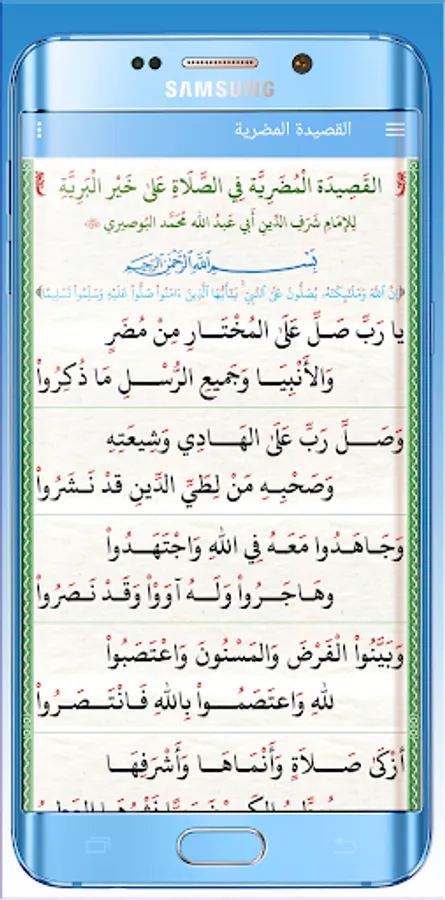 SAMSUNG
القصيدة المضرية
القَصِيدَة الْمُضَرِيَّة فِي الصَّلَاةِ عَلىٰ خَيْر الْبَرِيَّةِ
لِلإمَامِ شَرَفِ الدِّينِ أَبِي عَبدُ الله مُحَمَّد البُوصيري
بِسْمِ اللَّهِ الرَّحْمَنِ الرَّحِيمِ
إِنَّ ٱللَّهَ وَمَلَٰٓئِكَتَهُۥ يُصَلُّونَ عَلَى ٱلنَّبِيِّ ۚ يَٰٓأَيُّهَا ٱلَّذِينَ ءَامَنُوا۟ صَلُّوا۟ عَلَيْهِ وَسَلِّمُوا۟ تَسْلِيمًا
يا رَبِّ صَلِّ عَلَى الْمُخْتَــارِ مِنْ مُضَرٍ
وَالأَنْبِيَــا وَجَميعِ الرُّسْــلِ مَا ذُكِرُواْ
وَصَــلِّ رَبِّ عَلَىٰ الهَــادِي وَشِيعَتِهِ
وَصَحْبِــهِ مَنْ لِطَيِّ الدِّينِ قَدْ نَــشَرُواْ
وَجَــاهَــدُوا مَعَــهُ فِي اللهِ وَاجْتَهَــدُواْ
وهَــاجَــرُواْ وَلَــهُ آوَوْاْ وَقَــدْ نَــصَرُواْ
وَبَيَّنُواْ الْفَرْضَ وَالمَسْنُونَ وَاعْتَصَبُواْ
للهِ وَاعتَصَمُــــواْ بِاللهِ فَــانْتَــصَــرُواْ
أزْكَىٰ صَــــلَاةٍ وَأَنْمَاهَــا وَأَشْرَفِهَــا